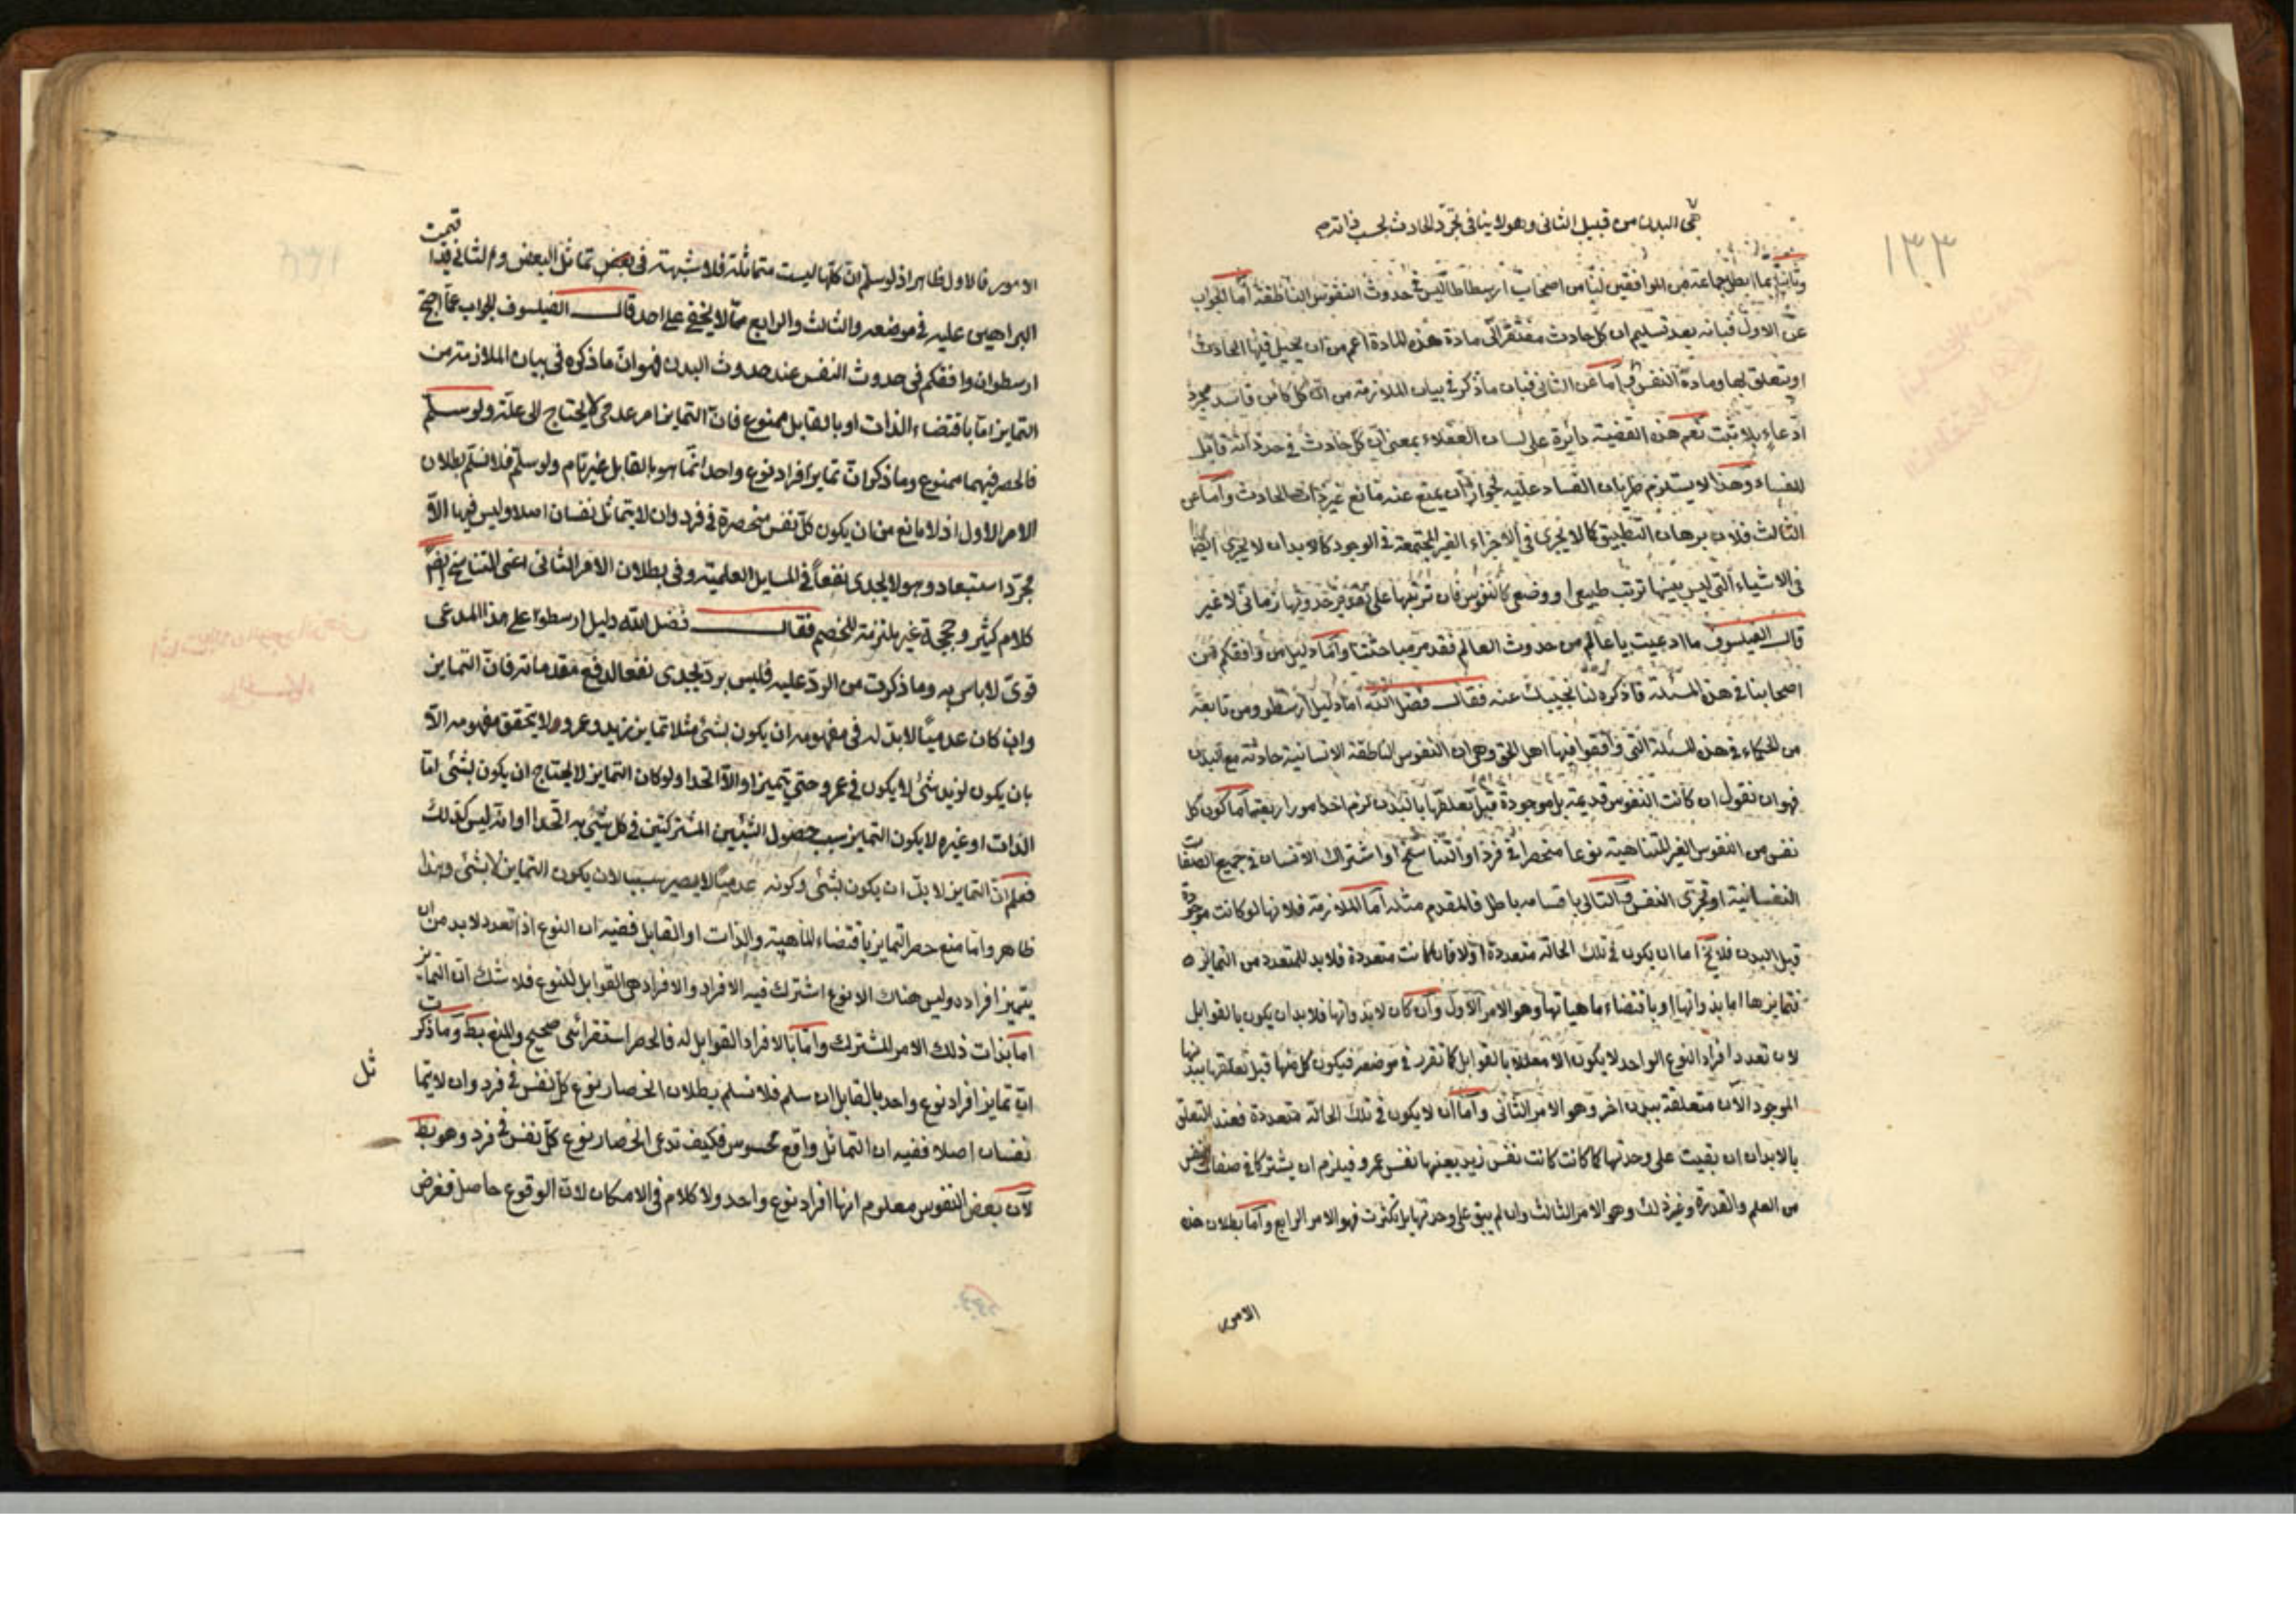 هي البدن من قبيل الثاني وهو لا ينافي تجرد الحادث بحسب ذاته م
١٣٣
وثانيا بما ابطل جماعة من الموافقين لنا من اصحاب ارسطاطاليس في حدوث النفوس الناطقة اما الجواب
عن الاول فبانه بعد تسليم ان كل حادث مفتقر الى مادة هذه المادة اعم من ان يحيل فيها الحادث
او يتعلق بها ومادة النفس واما عن الثاني فبان ما ذكر في بيان الملازمة من ان كل كائن فاسد مجرد
ادعاء بلا ثبت نعم هذه القضية دائرة على لسان العقلاء بمعنى ان كل حادث في حد ذاته قابل
للفساد وهذا لا يستلزم طريان الفساد عليه لجواز ان يمنع عنه مانع غير ذات الحادث واما عن
الثالث فلان برهان التطبيق كما لا يجري في الاجزاء الغير المجتمعة في الوجود كالابدان لا يجري ايضا
في الاشياء التي ليس بينها ترتب طبيعي او وضعي كالنفوس فان ترتبها على تقدير حدوثها زماني لا غير
قال الفيلسوف ما ادعيت يا عالم من حدوث العالم فقد مر مباحثنا واما دليل من وافقكم من
اصحابنا في هذه المسئلة فاذكره لنا نجيبك عنه فقال فضل الله اما دليل ارسطو ومن تابعه
من الحكماء في هذه المسئلة التي وافقوا فيها اهل الحق وهي ان النفوس الناطقة الانسانية حادثة مع البدن
فهو ان نقول ان كانت النفوس قديمة بل موجودة قبل تعلقها بالبدن لزم احد امور اربعة اما كون كل
نفس من النفوس الغير المتناهية نوعا منحصرا في فرد او التناسخ او اشتراك الانسان في جميع الصفات
النفسانية او تجزي النفس والتالي باقسامه باطل فالمقدم مثله اما الملازمة فلانها لو كانت موجودة
قبل البدن فلا يخ اما ان يكون في تلك الحالة متعددة اولا فان كانت متعددة فلا بد للمتعدد من التمايز
فتمايزها اما بذواتها او باقتضاء ماهياتها وهو الامر الاول وان كان لا بذواتها فلا بد ان يكون بالقوابل
لان تعدد افراد النوع الواحد لا يكون الا معللا بالقوابل كما تقرر في موضعه فيكون كل منها قبل تعلقها ببدنها
الموجود الآن متعلقة ببدن اخر وهو الامر الثاني واما ان لا يكون في تلك الحالة متعددة فعند التعلق
بالابدان ان بقيت على وحدتها كما كانت كانت نفس زيد بعينها نفس عمرو فيلزم ان يشتركا في صفات النفس
من العلم والقدرة وغير ذلك وهو الامر الثالث وان لم يبق على وحدتها بل تكثرت فهو الامر الرابع واما بطلان هذه
الامور
الامور فالاول ظاهر اذ لو سلم ان كلها ليست متماثلة فلا شبهة في بعض تماثل البعض والثاني قد اقيمت
البراهين عليه في موضعه والثالث والرابع مما لا يخفى على احد قال الفيلسوف الجواب عما احتج
ارسطو ان وافقكم في حدوث النفس عند حدوث البدن فهو ان ما ذكره في بيان الملازمة من
التمايز اما باقتضاء الذات او بالقابل ممنوع فان التمايز امر عدمي لا يحتاج الى علة ولو سلم
فالحصر فيهما ممنوع وما ذكر ان تمايز افراد نوع واحد انما هو بالقابل غير تام ولو سلم فلا نسلم بطلان
الامر الاول اذ لا مانع من ان يكون كل نفس منحصرة في فرد وان لا يتماثل نفسان اصلا وليس فيها الا
مجرد استبعاد وهو لا يجدي نفعا في المسايل العلمية وفي بطلان الامر الثاني اعني التناسخ ايضا
كلام كثير وحججه غير ملزمة للخصم فقال فضل الله دليل ارسطو على هذا المدعى
قوي لا باس به وما ذكرت من الرد عليه فليس برد يجدي نفعا لدفع مقدماته فان التمايز
وان كان عدميا لا بد له في مفهومه ان يكون بشئ مثلا تمايز زيد وعمرو لا يتحقق مفهومه الا
بان يكون لزيد شئ لا يكون في عمرو حتى يتميزا والا اتحدا ولو كان التمايز لا يحتاج ان يكون بشئ اما
الذات او غيره لا يكون التمايز سبب حصول الشيئين المشتركين في كل شئ به اتحدا او انه ليس كذلك
فعلم ان التمايز لا بد ان يكون بشئ وكونه عدميا لا يصير سببا لان يكون التمايز لا بشئ وهذا
ظاهر واما منع حصر التمايز باقتضاء الماهية والذات او القابل ففيه ان النوع اذا تعدد لا بد من ان
يتميز افراده وليس هناك الا نوع اشترك فيه الافراد والافراد هي القوابل للنوع فلا شك ان التمايز
اما بذات ذلك الامر المشترك واما بالافراد القوابل له فالحصر استقرائي صحيح والمنع بط وما ذكرت
ان تمايز افراد نوع واحد بالقابل ان سلم فلا نسلم بطلان انحصار نوع كل نفس في فرد وان لا يتما
ثل
نفسان اصلا ففيه ان التماثل واقع محسوس فكيف تدعي انحصار نوع كل نفس في فرد وهو بط
لان بعض النفوس معلوم انها افراد نوع واحد ولا كلام في الامكان لان الوقوع حاصل ففرض